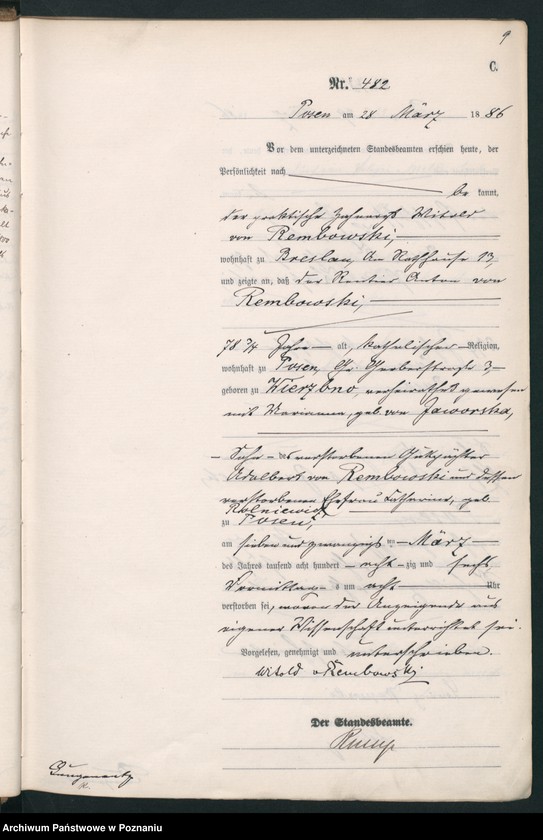 9
C.
Nr. 482
Posen am 28 März 1886
Vor dem unterzeichneten Standesbeamten erschien heute, der
Persönlichkeit nach
be kannt,
der praktische Zahnarzt Witold
von Rembowski,
wohnhaft zu Breslau, Am Rathhause 13,
und zeigte an, daß der Rentier Anton von
Rembowski,
78 3/4 Jahre alt, katholischer Religion,
wohnhaft zu Posen, Gr. Gerberstraße 3,
geboren zu Wierzbno, verheirathet gewesen
mit Marianna, geb. von Jaworska,
Sohn des verstorbenen Gutspächter
Adalbert von Rembowski und dessen
verstorbenen Ehefrau Catharina, geb.
Rolniewicz
zu Posen,
am sieben und zwanzigsten März
des Jahres tausend acht hundert acht zig und sechs
Vormittags um acht Uhr
verstorben sei, wovon der Anzeigende aus
eigener Wissenschaft unterrichtet sei.
Vorgelesen, genehmigt und unterschrieben.
Witold v Rembowski
Der Standesbeamte.
Archiwum Państwowe w Poznaniu